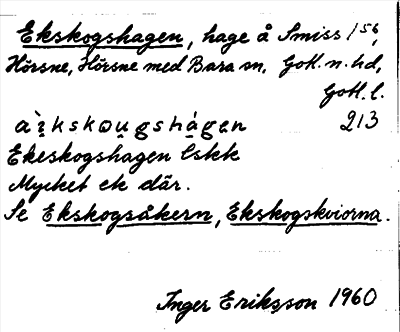 Ekskogshagen, hage å Smiss 1⁵⁶,
Hörsne, Hörsne med Bara sn, Gotl. n. hd,
Gotl. l.
213
Ekeskogshagen lskk
Mycket ek där.
Se Ekskogsåkern, Ekskogskviorna.
Inger Eriksson 1960